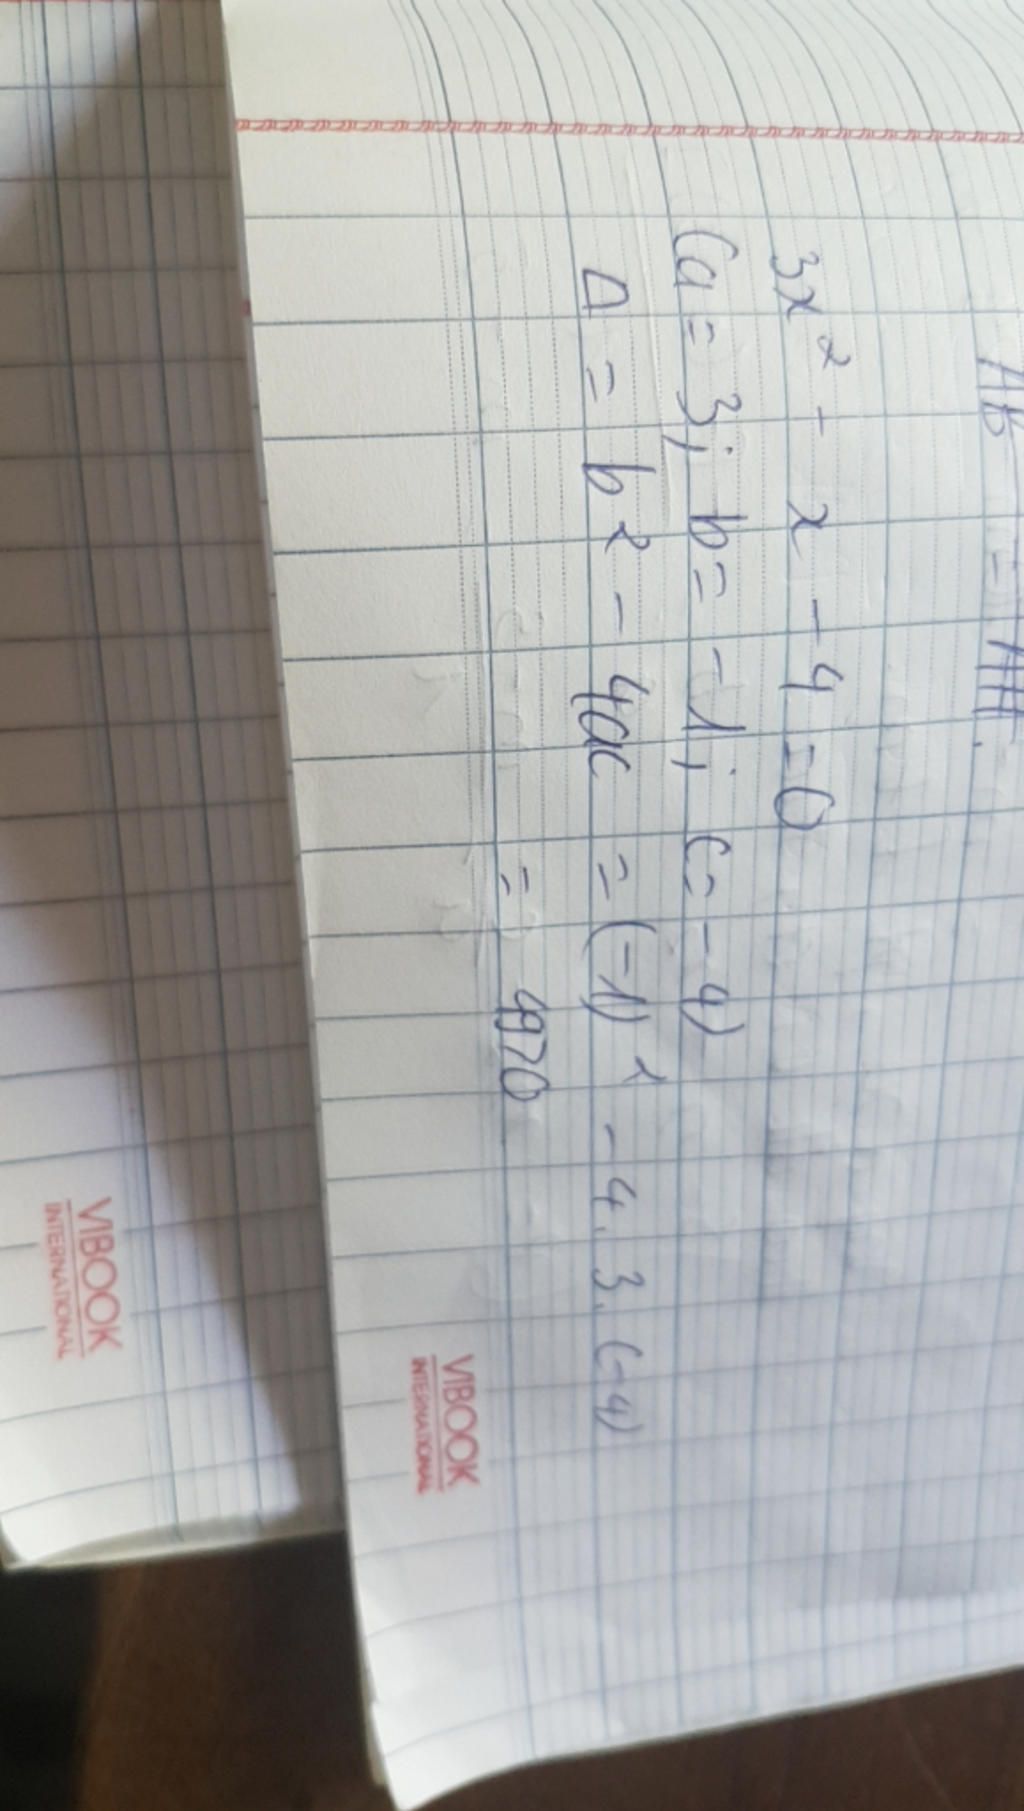 AB = AH.
3x² - x - 4 = 0
(a = 3; b = -1; c = -4)
Δ = b² - 4ac = (-1)² - 4.3.(-4)
= 49>0
VIBOOK
INTERNATIONAL
VIBOOK
INTERNATIONAL